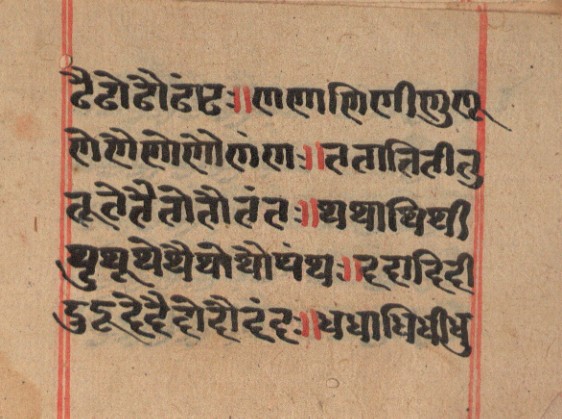 ढैढोढौढंढः॥णणाणिणीणुणू
णेणैणोणौणंणः॥ततातितीतु
तूतेतैतोतौतंतः॥थथाथिथी
थुथूथेथैथोथौथंथः॥ददादिदी
दुदूदेदैदोदौदंदः॥धधाधिधीधु